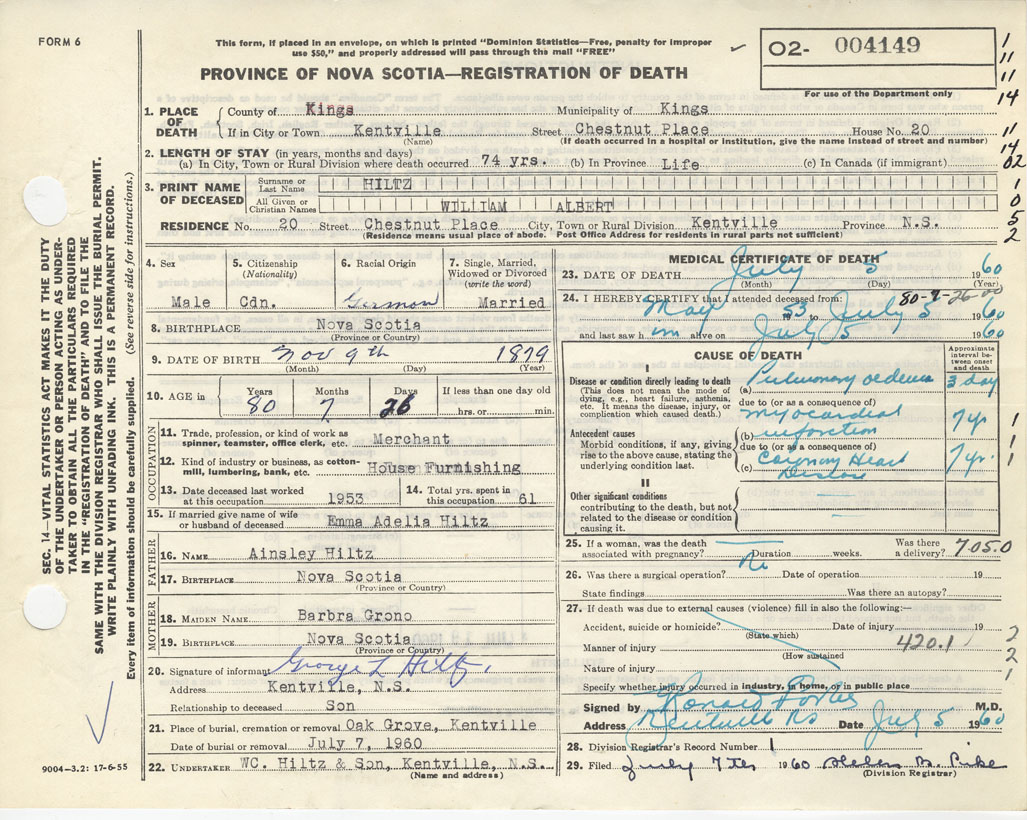 FORM 6
This form, if placed in an envelope, on which is printed "Dominion Statistics—Free, penalty for improper
use $50," and properly addressed will pass through the mail "FREE"
PROVINCE OF NOVA SCOTIA—REGISTRATION OF DEATH
O2- 004149
For use of the Department only
1
11
11
14
11
14
02
1
0
5
2
1. PLACE OF DEATH
County of Kings Municipality of Kings
If in City or Town Kentville Street Chestnut Place House No. 20
(Name) (If death occurred in a hospital or institution, give the name instead of street and number)
2. LENGTH OF STAY (in years, months and days)
(a) In City, Town or Rural Division where death occurred 74 yrs. (b) In Province Life (c) In Canada (if immigrant)
3. PRINT NAME OF DECEASED
Surname or Last Name HILTZ
All Given or Christian Names WILLIAM ALBERT
RESIDENCE No. 20 Street Chestnut Place City, Town or Rural Division Kentville Province N.S.
(Residence means usual place of abode. Post Office Address for residents in rural parts not sufficient)
4. Sex
Male
5. Citizenship
(Nationality)
Cdn.
6. Racial Origin
German
7. Single, Married,
Widowed or Divorced
(write the word)
Married
8. BIRTHPLACE Nova Scotia
(Province or Country)
9. DATE OF BIRTH Nov 9th 1879
(Month) (Day) (Year)
10. AGE in
Years Months Days If less than one day old
80 7 26 hrs. or min.
OCCUPATION
11. Trade, profession, or kind of work as
spinner, teamster, office clerk, etc. Merchant
12. Kind of industry or business, as cotton-
mill, lumbering, bank, etc. House Furnishing
13. Date deceased last worked
at this occupation 1953
14. Total yrs. spent in
this occupation 61
15. If married give name of wife
or husband of deceased Emma Adelia Hiltz
FATHER
16. NAME Ainsley Hiltz
17. BIRTHPLACE Nova Scotia
(Province or Country)
MOTHER
18. MAIDEN NAME Barbra Grono
19. BIRTHPLACE Nova Scotia
(Province or Country)
20. Signature of informant George L Hiltz,
Address Kentville, N.S.
Relationship to deceased Son
21. Place of burial, cremation or removal Oak Grove, Kentville
Date of burial or removal July 7, 1960
22. UNDERTAKER WC. Hiltz & Son, Kentville, N.S.
(Name and address)
MEDICAL CERTIFICATE OF DEATH
23. DATE OF DEATH July 5 1960
(Month) (Day) (Year)
24. I HEREBY CERTIFY that I attended deceased from: 80-7-26-00
May 53 to July 5 1960
and last saw h im alive on July 5 1960
CAUSE OF DEATH
Approximate interval between onset and death
I
Disease or condition directly leading to death
(This does not mean the mode of
dying, e.g., heart failure, asthenia,
etc. It means the disease, injury, or
complication which caused death.)
(a) Pulmonary oedema 3 day
due to (or as a consequence of)
Antecedent causes
Morbid conditions, if any, giving
rise to the above cause, stating the
underlying condition last.
(b) myocardial infarction 7 yr
due to (or as a consequence of)
(c) Coronary Heart Disease 7 yr.
1
1
1
II
Other significant conditions
contributing to the death, but not
related to the disease or condition
causing it.
25. If a woman, was the death
associated with pregnancy? Duration weeks. Was there a delivery? 705.0
26. Was there a surgical operation? No Date of operation 19
State findings Was there an autopsy?
27. If death was due to external causes (violence) fill in also the following:—
Accident, suicide or homicide? Date of injury 19
(State which)
Manner of injury 420.1
(How sustained
Nature of injury
2
2
1
Specify whether injury occurred in industry, in home, or in public place
Signed by Ronald Forbes M.D.
Address Kentville NS Date July 5 1960
28. Division Registrar's Record Number 1
29. Filed July 7th 1960 Helen M. Pike
(Division Registrar)
SEC. 14—VITAL STATISTICS ACT MAKES IT THE DUTY
OF THE UNDERTAKER OR PERSON ACTING AS UNDER-
TAKER TO OBTAIN ALL THE PARTICULARS REQUIRED
IN THE "REGISTRATION OF DEATH" AND TO FILE THE
SAME WITH THE DIVISION REGISTRAR WHO SHALL ISSUE THE BURIAL PERMIT.
WRITE PLAINLY WITH UNFADING INK. THIS IS A PERMANENT RECORD.
Every item of information should be carefully supplied. (See reverse side for instructions.)
9004-3.2: 17-6-55